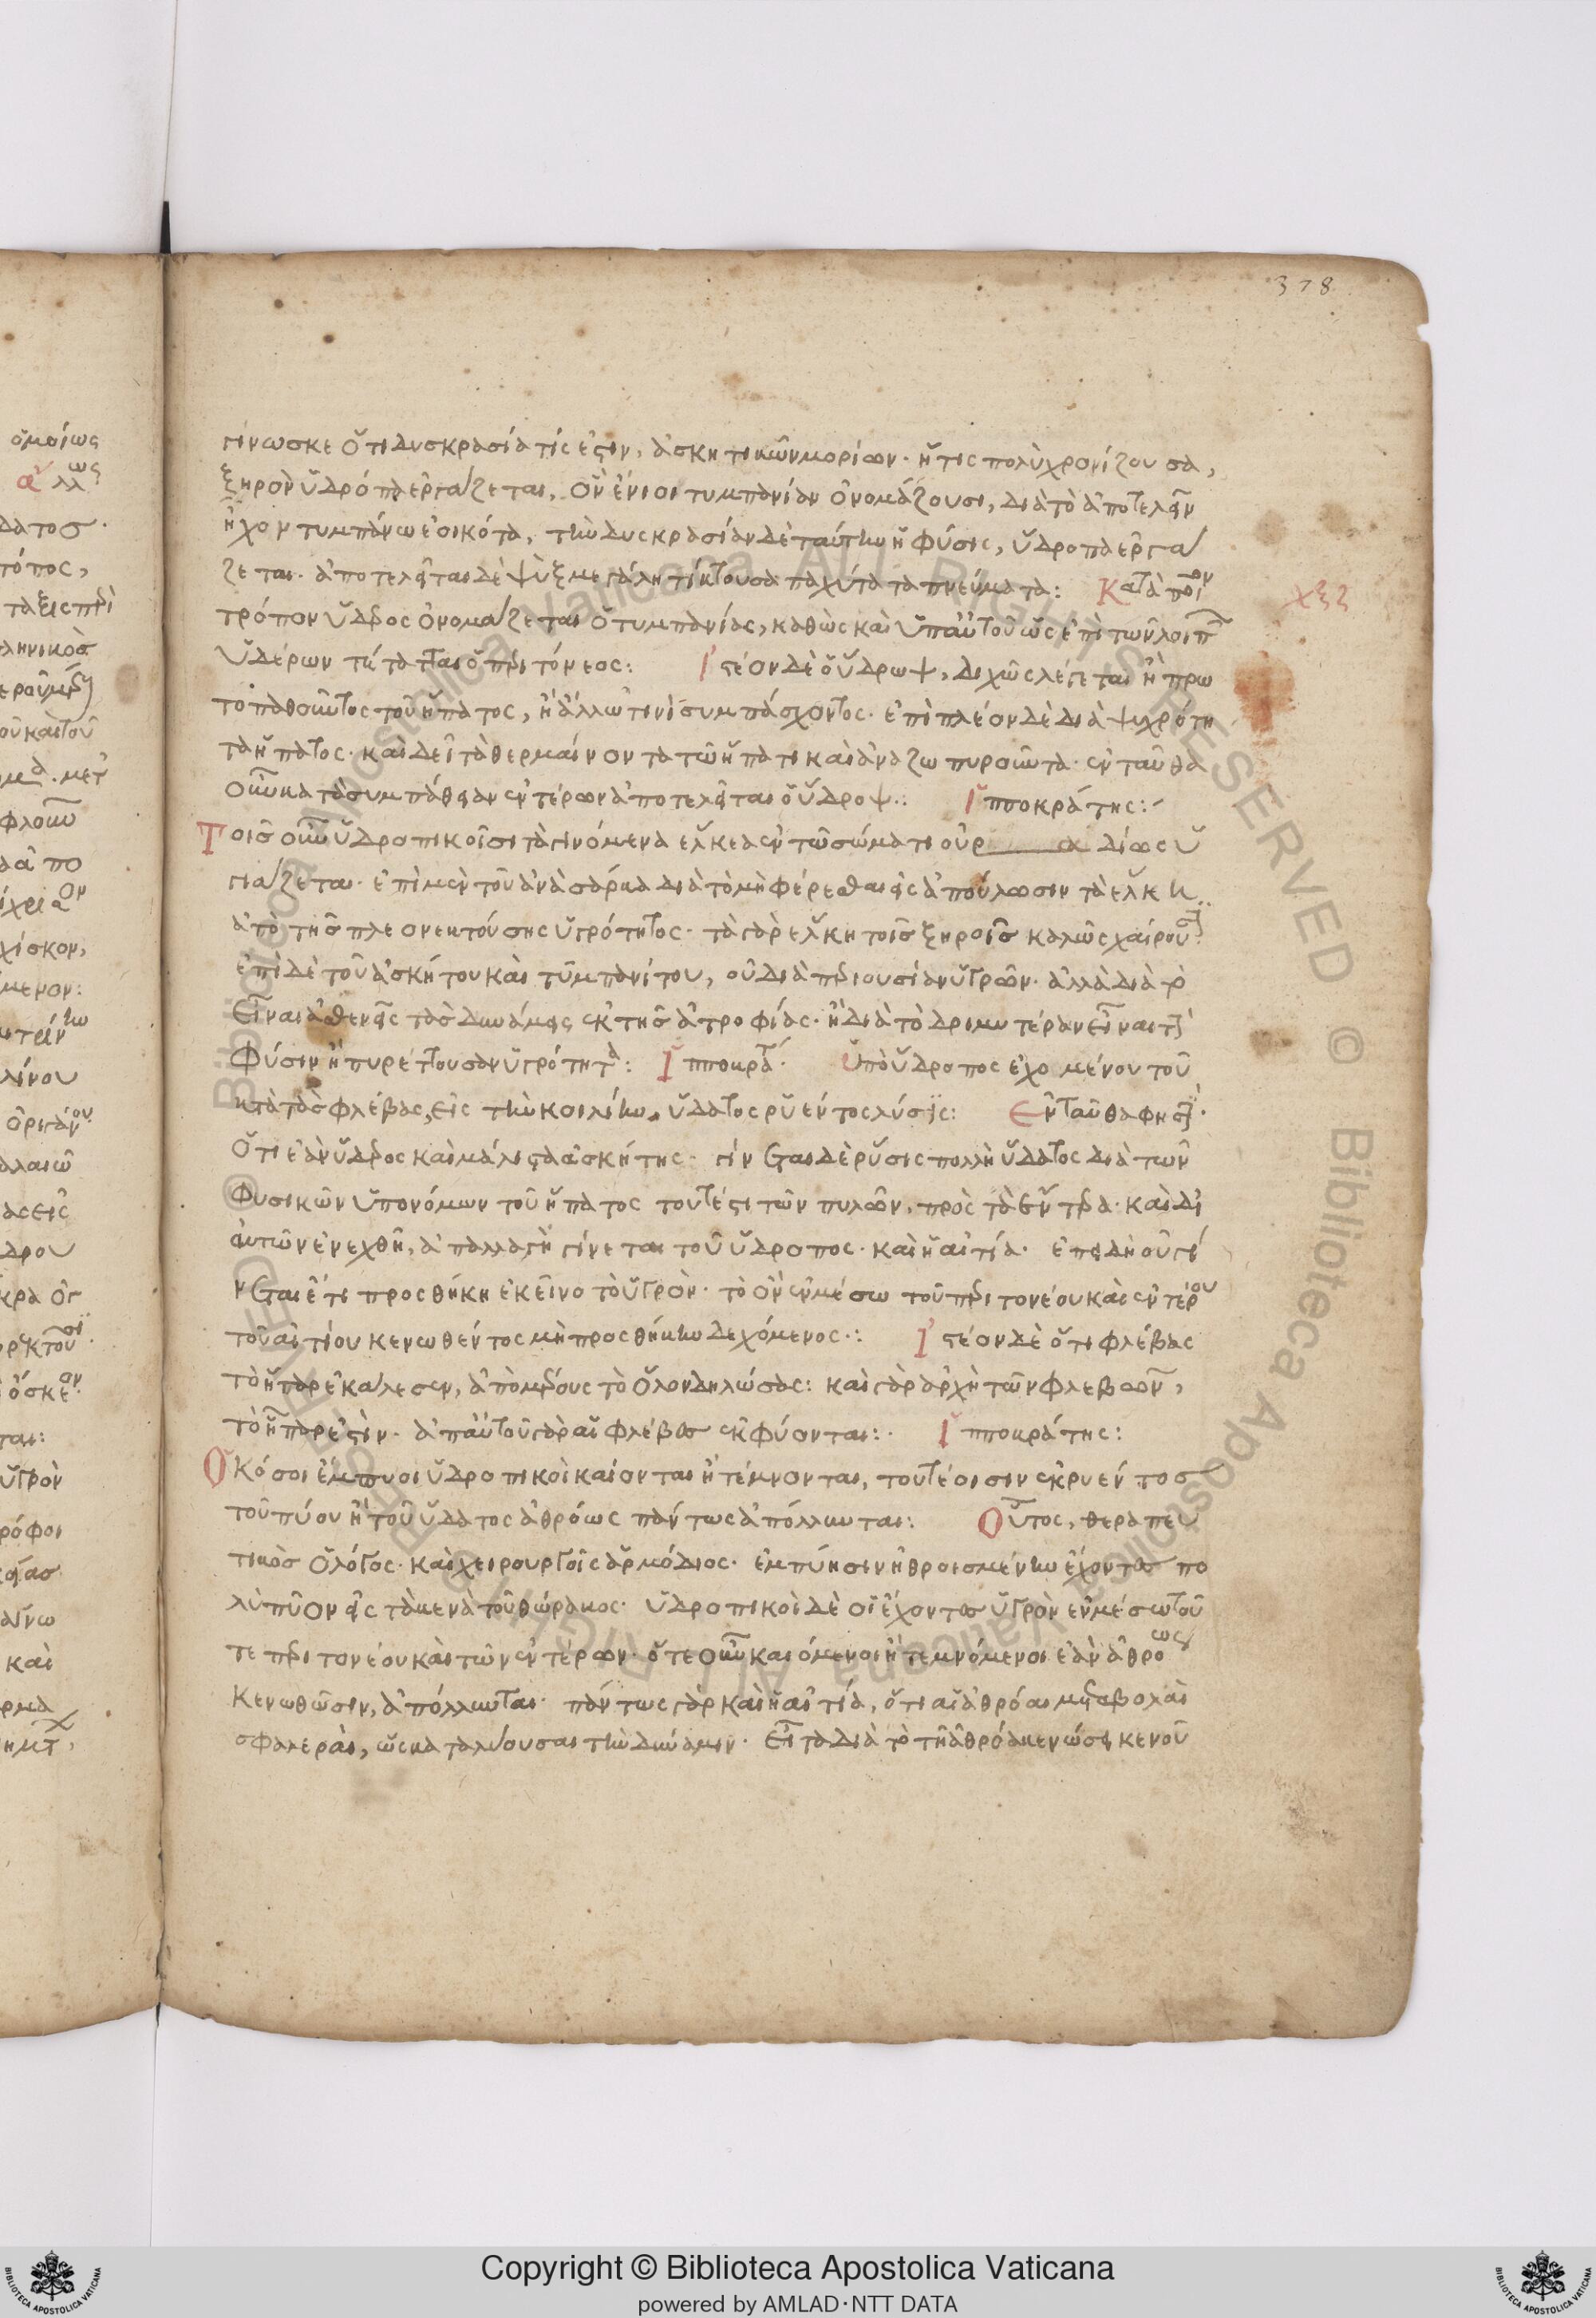 378
γίνωσκε ὅτι δυσκρασία τίς ἐστιν, ἀσκητικῶν μορίων. ἥτις πολὺχρονίζουσα,
ξηρὸν ὕδρόπα ἐργάζεται, ὃν ἔνιοι τυμπανίαν ὀνομάζουσι, διὰ τὸ ἀποτελεῖν
ἦχον τυμπάνω ἐοικότα, τὴν δυσκρασίαν δὲ ταύτην ἡ φύσις, ὕδροπα ἐργά
ζεται. ἀποτελεῖται δὲ ψὺξ μεγάλη τίκτουσα παχύτατα πνεύματα: Κατὰ ποῖον
χξζ
τρόπον ὕδρος ὀνομάζεται ὁ τυμπανίας, καθὼς καὶ ὑπ' αὐτοῦ ὡς ἐπὶ τῶν λοιπῶν
ὑδέρων τέταται ὁ περιτόνεος: Ἰστέον δὲ ὁ ὕδρωψ, διχῶς λέγεται ἢ πρω
τοπαθοῦντος τοῦ ἥπατος, ἢ ἄλλω τινὶ συμπάσχοντος. ἐπὶ πλέον δὲ διὰ ψυχρότη
τα ἥπατος. καὶ δεῖ τὰ θερμαίνοντα τῶ ἥπατι καὶ ἀναζωπυροῦντα. ἐνταῦθα
οὖν κατὰ συμπάθειαν ἐντέρων ἀποτελεῖται ὁ ὕδροψ.: Ἱπποκράτης:
Τοῖς οὖν ὑδροπικοῖσι τὰ γινόμενα ἕλκεα ἐν τῶ σώματι οὐ ῥα δίως ὑ
γιάζεται. ἐπὶ μὲν τοῦ ἀνὰ σάρκα διὰ τὸ μὴ φέρεσθαι εἰς ἀπούλωσιν τὰ ἕλκη
ἀπὸ τῆς πλεονεκτούσης ὑγρότητος. τὰ γὰρ ἕλκη τοῖς ξηροῖς καλῶς χαίρουσι.
ἐπὶ δὲ τοῦ ἀσκήτου καὶ τυμπανίτου, οὐ διὰ περιουσίαν ὑγρῶν. ἀλλὰ διὰ τὸ
εἶναι ἀσθενεῖς τὰς δυνάμεις ἐκ τῆς ἀτροφίας. ἢ διὰ τὸ δριμυτέραν εἶναι τὴν
φύσιν ἢ πυρέττουσαν ὑγρότητα: Ἱπποκράτ. Ὑπὸ ὕδροπος ἐχομένου τοῦ
κατὰ τὰς φλέβας, εἰς τὴν κοιλίην, ὕδατος ῥυέντος λύσις: Ἐνταῦθα φησὶ.
ὅτι ἐὰν ὕδρος καὶ μάλιστα ἀσκήτης. γίνεται δὲ ῥύσις πολλὴ ὕδατος διὰ τῶν
φυσικῶν ὑπονόμων τοῦ ἥπατος τουτέστι τῶν πυλῶν, πρὸς τὰ ἔντερα. καὶ δι'
αὐτῶν ἐνεχθῆ, ἀπαλλαγὴ γίνεται τοῦ ὕδροπος. καὶ ἡ αἰτία. ἐπειδὴ οὐ γί
νεται ἔτι προσθήκη ἐκεῖνο τὸ ὑγρὸν. τὸ ὂν ἐν μέσω τοῦ περιτονέου καὶ ἐντέρου
τοῦ αἰτίου κενωθέντος μὴ προσθήκην δεχόμενος.: Ἰστέον δὲ ὅτι φλέβας
τὸ ἧπαρ ἐκάλεσεν, ἀπὸ μέρους τὸ ὅλον δηλώσας: καὶ γὰρ ἀρχὴ τῶν φλεβῶν,
τὸ ἧπαρ ἐστὶν. ἀπ' αὐτοῦ γὰρ αἱ φλέβες ἐκφύονται:. Ἱπποκράτης:
Ὁκόσοι ἔμπυοι ὑδροπικοὶ καίονται ἢ τέμνονται, τουτέοισιν ἐκρυέντος
τοῦ πύου ἢ τοῦ ὕδατος ἀθρόως πάντως ἀπόλλυνται: Οὗτος, θεραπευ
τικὸς ὁ λόγος. καὶ χειρουργοῖς ἁρμόδιος. ἐμπύησιν ἠθροισμένην ἔχοντες πο
λὺ πῦον εἰς τὰ κενὰ τοῦ θώρακος. ὑδροπικοὶ δὲ οἱ ἔχοντες ὑγρὸν ἐν μέσω τοῦ
τε περιτονέου καὶ τῶν ἐντέρων. ὅτε οὖν καιόμενοι ἢ τεμνόμενοι ἐὰν ἀθρόως
κενωθῶσιν, ἀπόλλυνται. πάντως γὰρ καὶ ἡ αἰτία, ὅτι αἱ ἀθρόαι μεταβολαὶ
σφαλεραὶ, ὡς καταλύουσαι τὴν δύναμιν. εἶτα διὰ τὸ τῆ ἀθρόα κενώσει κενοῦ
Copyright © Biblioteca Apostolica Vaticana
powered by AMLAD·NTT DATA